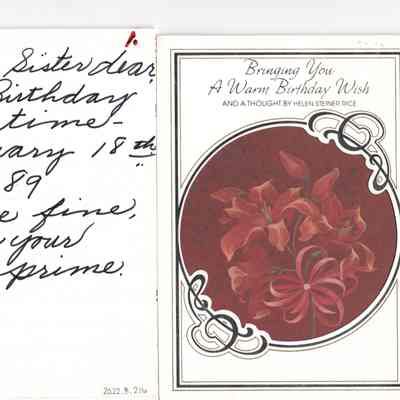 1.
Sister dear
Birthday
time-
uary 18th
89
e fine,
your
prime.
2022.8.216
Bringing You
A Warm Birthday Wish
AND A THOUGHT BY HELEN STEINER RICE